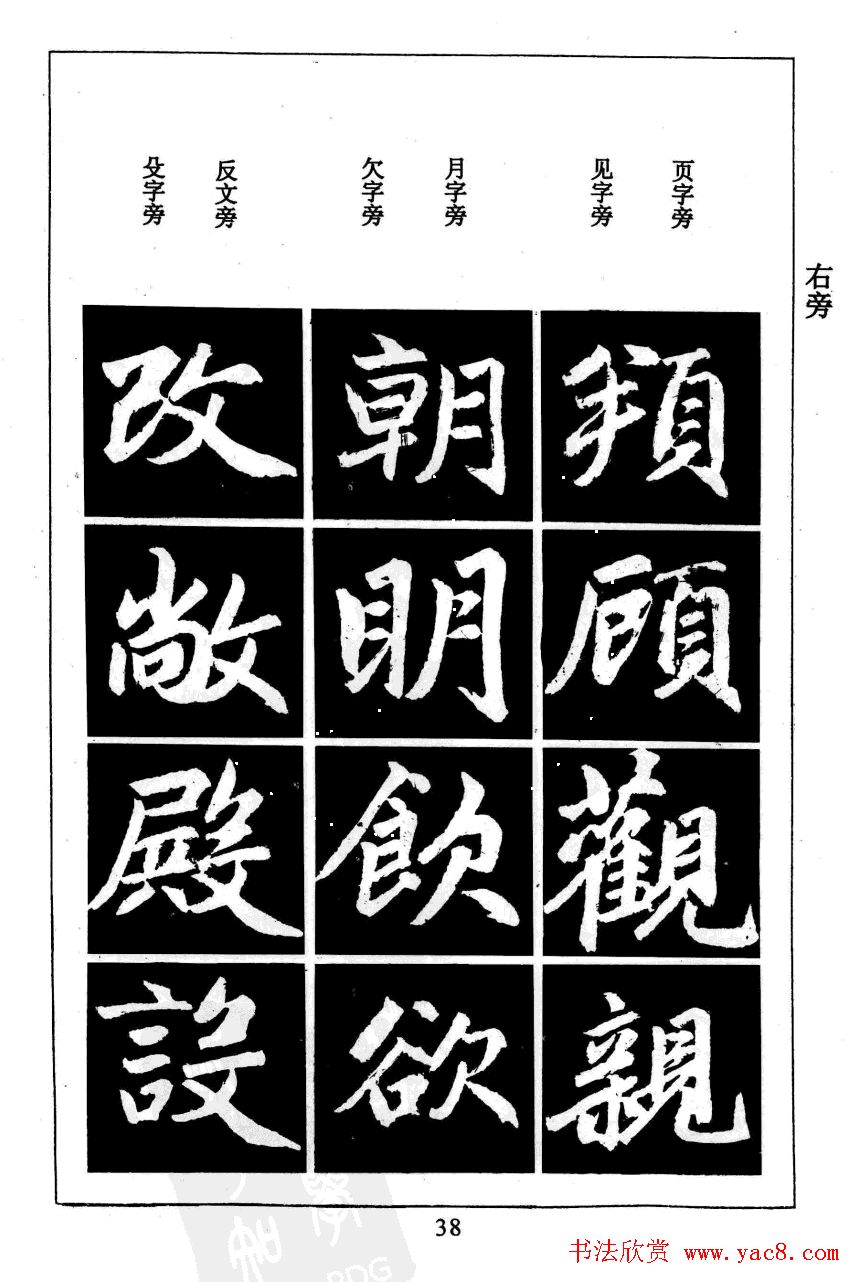 右旁
页字旁
见字旁
月字旁
欠字旁
反文旁
殳字旁
頻顧觀親
朝明飲欲
改敞殿設
38
书法欣赏 www.yac8.com
PDG